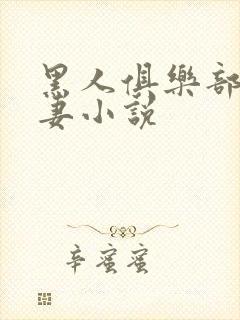 黑人俱樂部
妻小說
辛蜜蜜